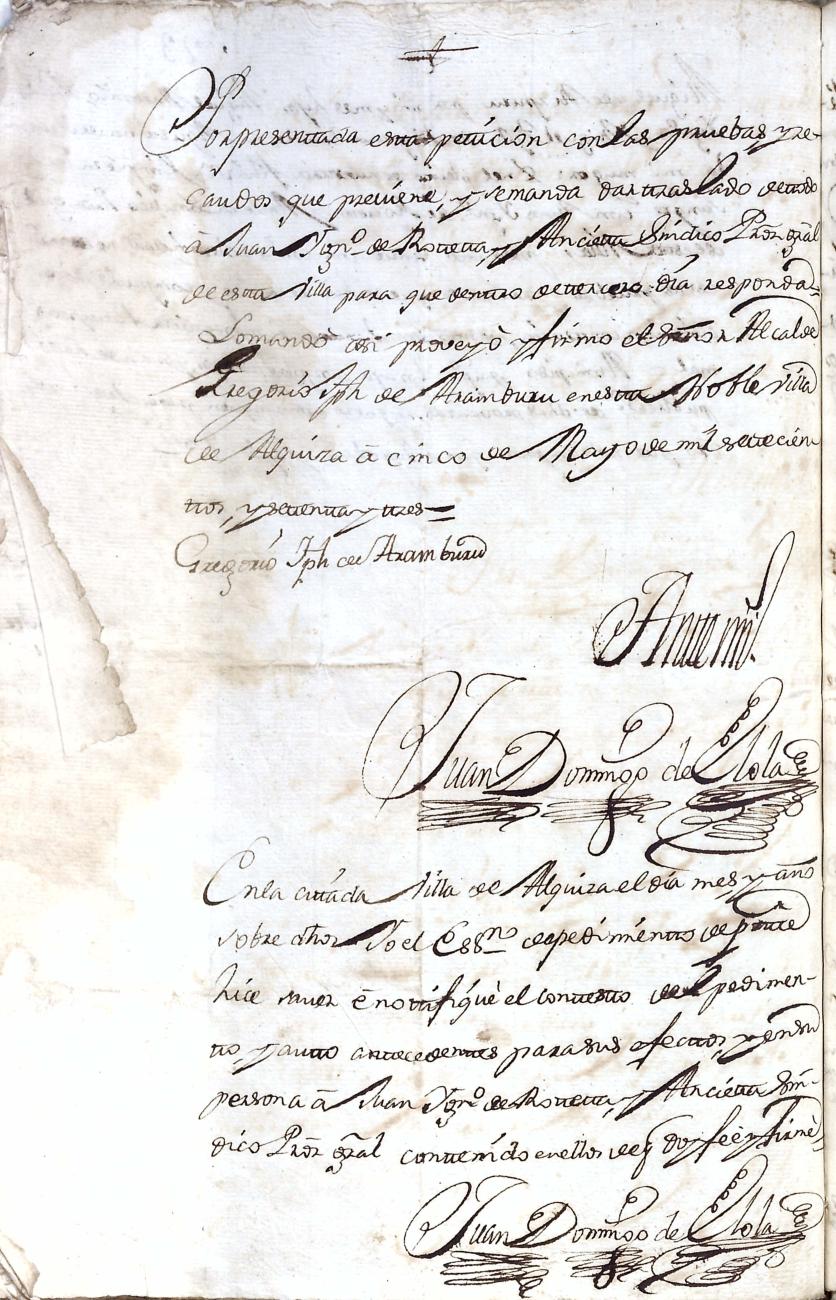 Por presentada esta peticion con las pruebas y re-
caudos que previene, y se manda dar traslado de todo
â Juan Ygnº de Rotetta y Ancietta Sindico Prōr gral
de esta Villa para que dentro de tercero dia responda=
Lo mandò asi proveyò y firmo el Señor Alcalde
Gregorio Jph de Aramburu en esta Noble villa
de Alquiza â cinco de Mayo de mil setecien
tos, y setenta y tres=
Gregorio Jph de Aramburu
Ante mi
Juan Domingo de Elola
En la cittada Villa de Alquiza el dia mes y año
sobre dhos Yo el Essno de pedimiento de partte
hice saver ê nottifiquè el contesto del pedimen-
to, y autto antecedentes para sus efectos, y en su
persona â Juan Ygnº de Rotetta, y Ancietta Sin-
dico Prōr gral contenido en ellos de q doy feè y firmè=
Juan Domingo de Elola